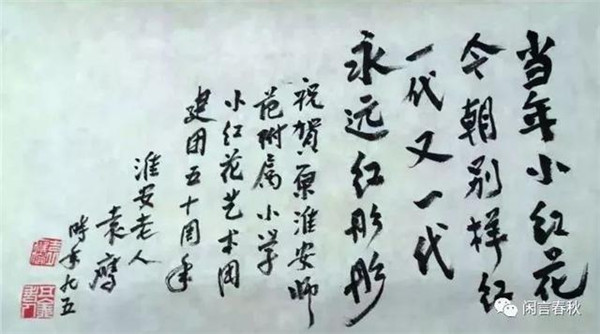 当年小红花
今朝别样红
一代又一代
永远红彤彤
祝贺原淮安师
范附属小学
小红花艺术团
建团五十周年
淮安老人
袁鹰
时年九五
闲言春秋